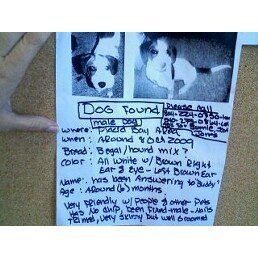 DOG Found
Please call
(male dog)
where: Placid Bay Area
when: Around 8 Dec 2009
Breed: Begal/hound mix?
Color: All White w/ Brown Right
Ear & eye - Left Brown Ear
Name: has been Answering to Buddy?
Age: Around (6) months.
Very Friendly w/ people & other Pets
Has No only been Fixed-male - Nails
Trimed, Very Skinny but well Groomed